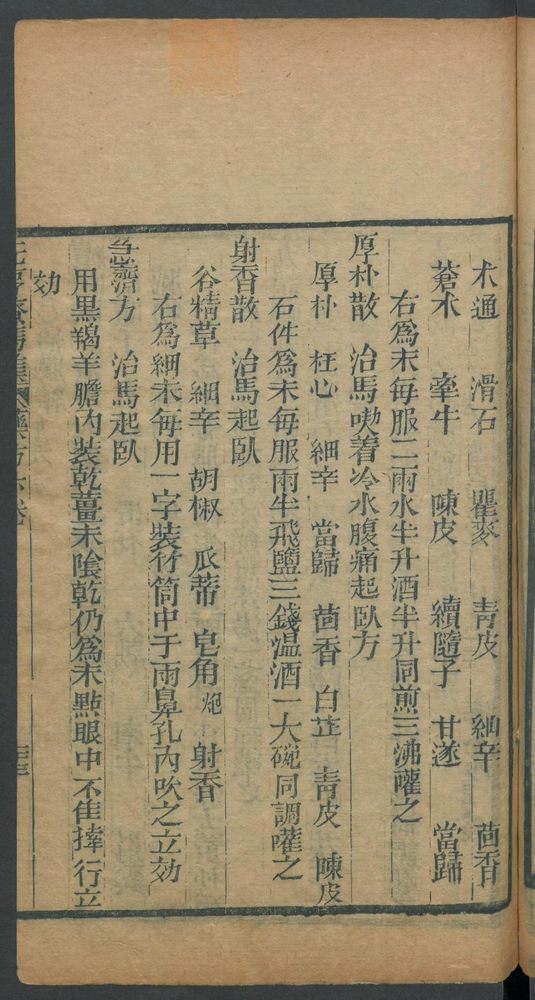 木通 滑石 瞿麥 青皮 細辛 茴香
蒼朮 牽牛 陳皮 續隨子 甘遂 當歸
右爲末每服二兩水半升酒半升同煎三沸嚾之
厚朴散 治馬喫着冷水腹痛起卧方
厚朴 枉心 細辛 當歸 茴香 白芷 青皮 陳皮
石件爲末每服兩半飛鹽三錢温酒一大碗同調嚾之
射香散 治馬起卧
谷精草 細辛 胡椒 瓜蒂 皂角炮 射香
右爲細末每用一字裝竹筒中于兩鼻孔內吹之立効
急濟方 治馬起卧
用黒羯羊膽內裝乾薑末陰乾仍爲末點眼中不隹摔行立
効